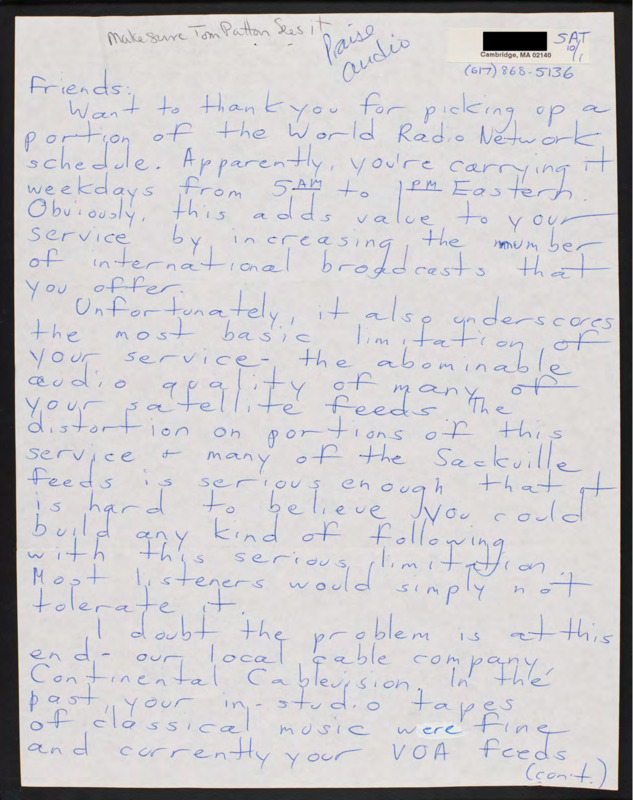 Make sure Tom Patton Sees it
Paise
audio
SAT
10/1
Cambridge, MA 02140
(617) 868-5136
Friends:
Want to thank you for picking up a
portion of the World Radio Network
schedule. Apparently, you're carrying it
weekdays from 5 AM to 1 PM Eastern.
Obviously, this adds value to your
service by increasing the number
of international broadcasts that
you offer.
Unfortunately, it also underscores
the most basic limitation of
your service - the abominable
audio quality of many of
your satellite feeds. The
distortion on portions of this
service + many of the Sackville
feeds is serious enough that it
is hard to believe you could
build any kind of following
with this serious limitation.
Most listeners would simply not
tolerate it.
I doubt the problem is at this
end - our local cable company,
Continental Cablevision. In the
past, your in-studio tapes
of classical music were fine
and currently your VOA feeds
(con.t.)